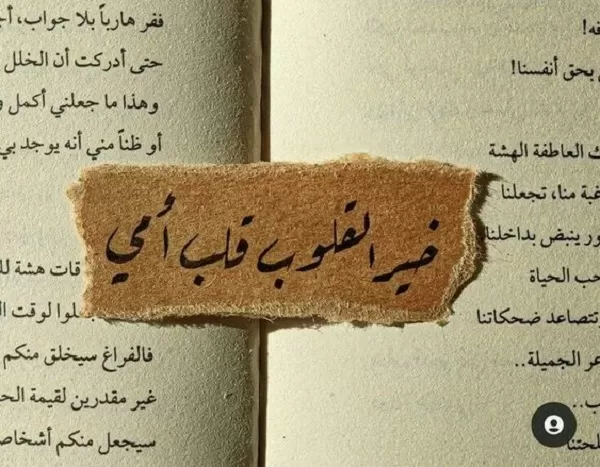 خير القلوب قلب أمي
فه!
ي يحق أنفسنا!
ك العاطفة الهشة
غبة منا، تجعلنا
ور ينبض بداخلنا
حب الحياة
وتتصاعد ضحكاتنا
عر الجميلة..
ب..
لحتنا
فقر هارباً بلا جواب، أج
حتى أدركت أن الخلل
وهذا ما جعلني أكمل و
أو ظناً مني أنه يوجد بي
قات هشة لل
علوا لوقت ال
فالفراغ سيخلق منكم
غير مقدرين لقيمة الح
سيجعل منكم أشخاص